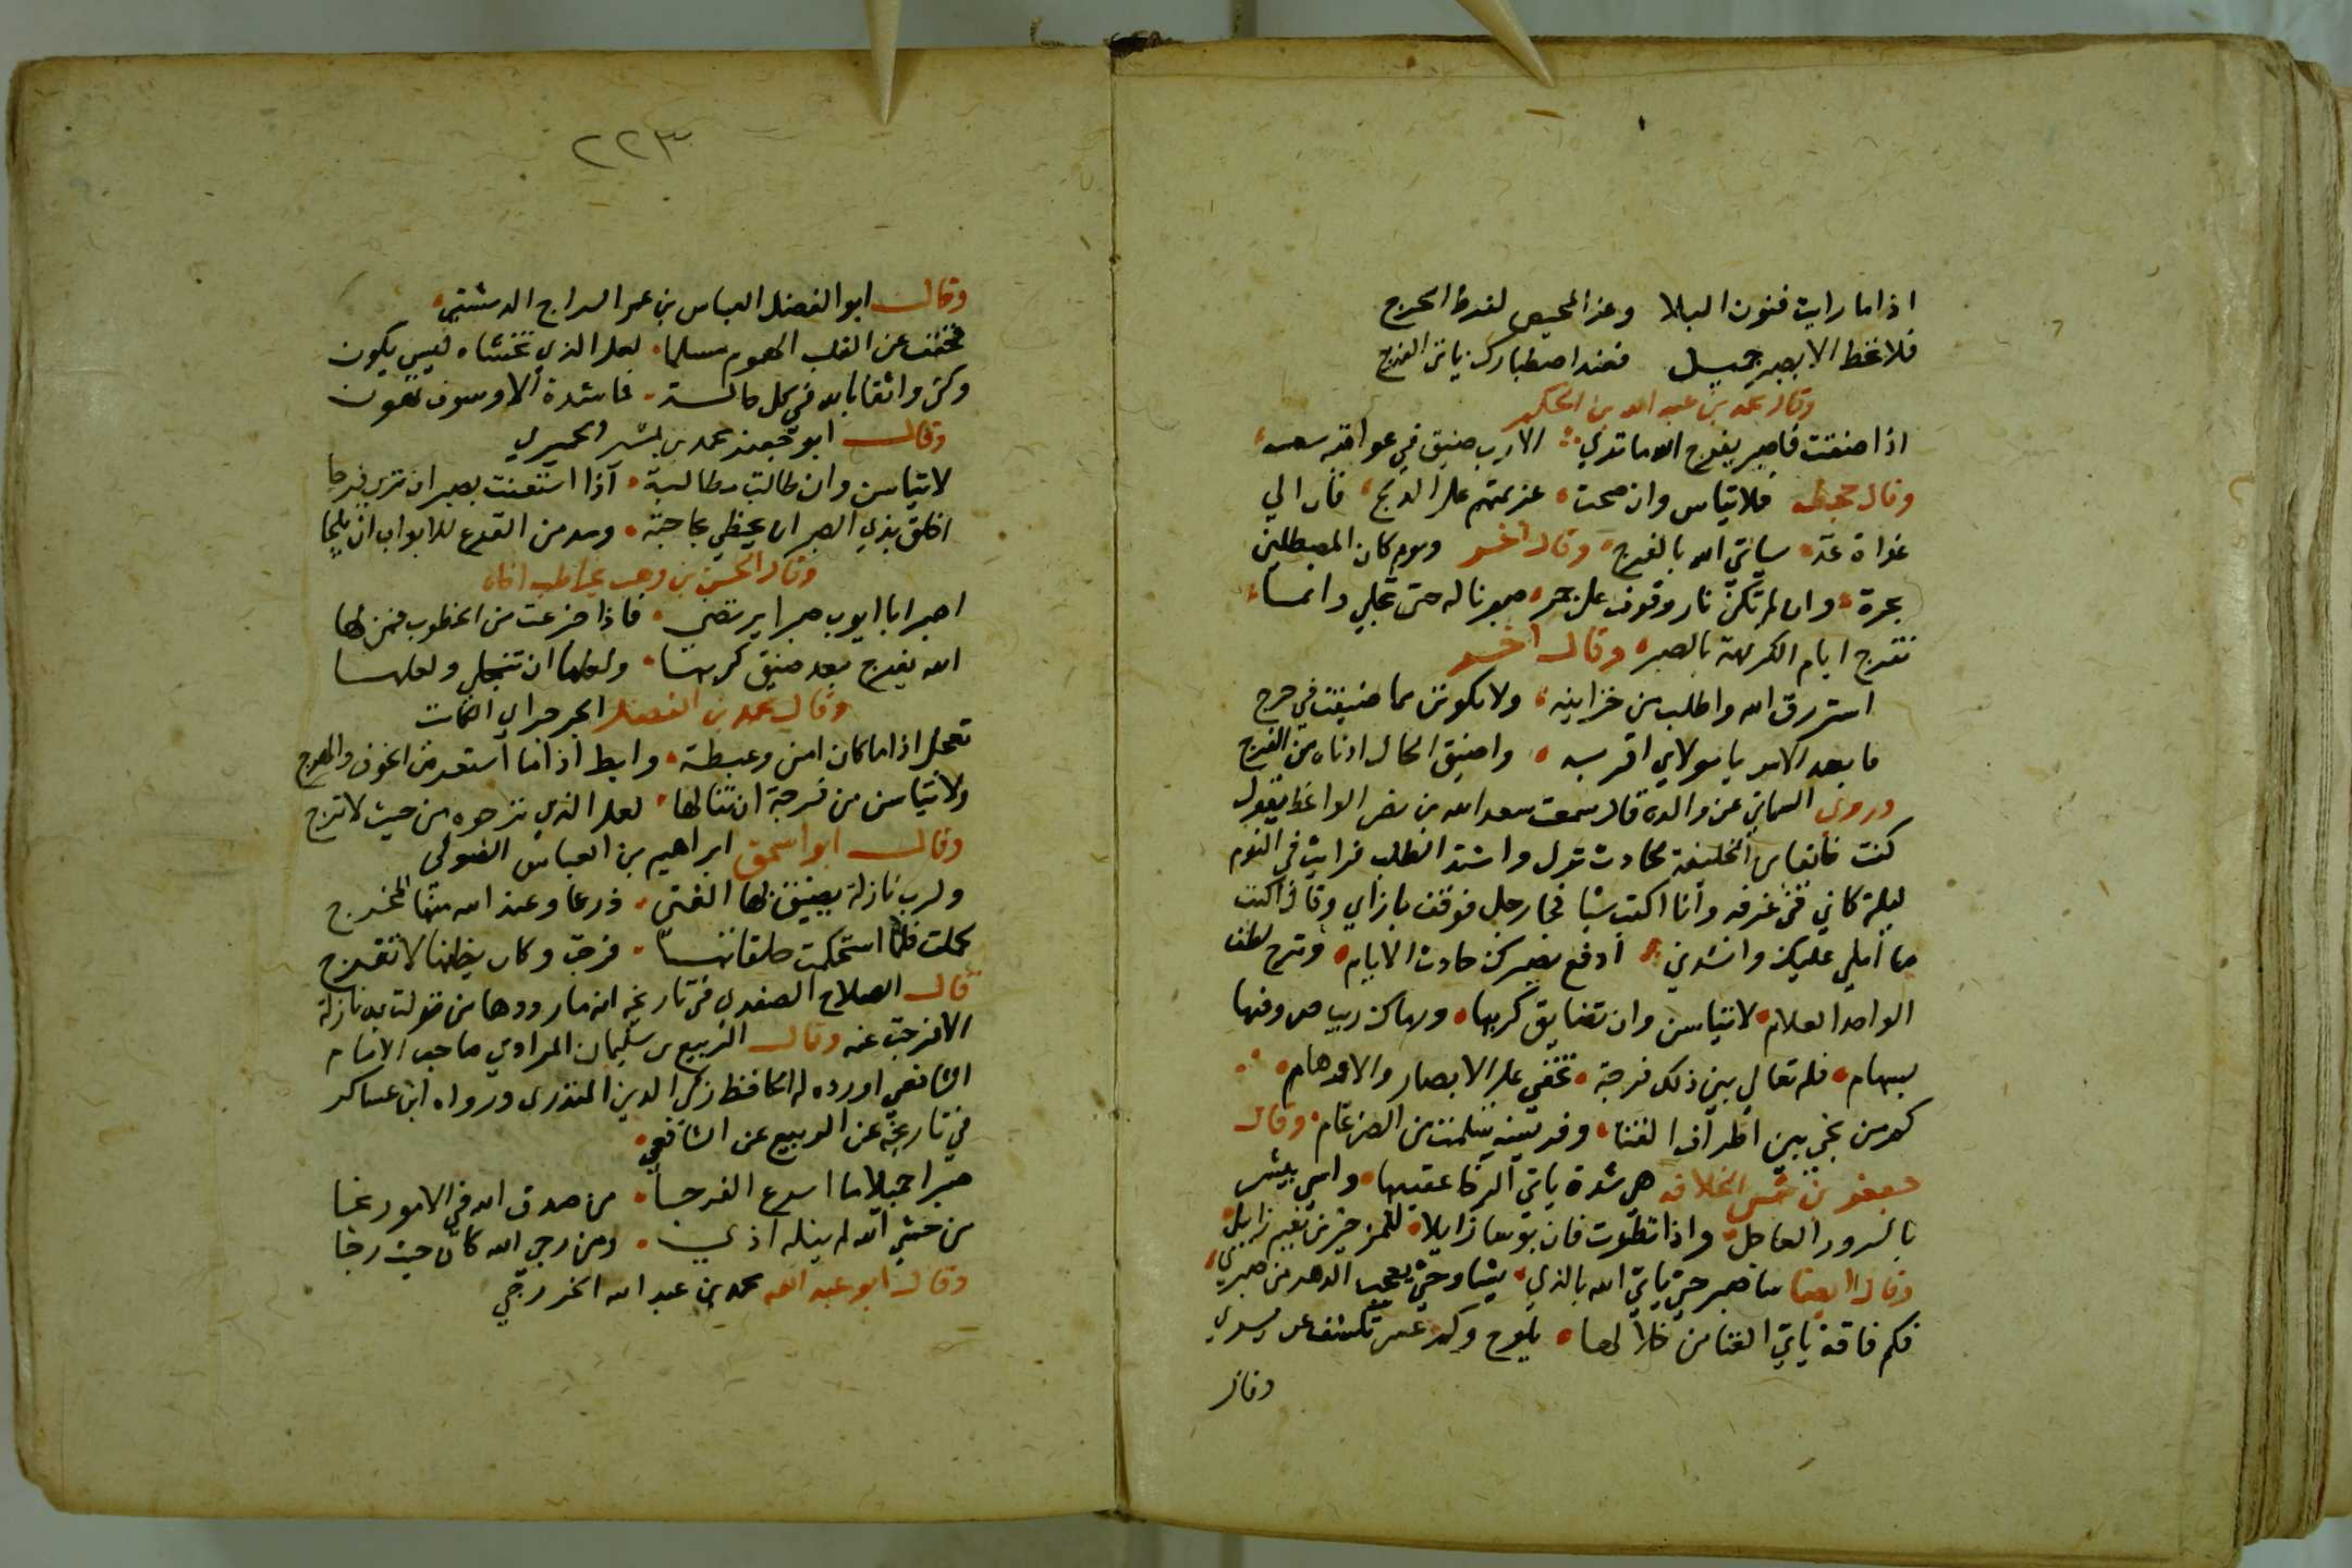 اذا ما رايت فنون البلا وعز المحيص لفرط الحرج
فلا تخط الا بصبر جميل فعند اصطبارك ياتى الفرج
وقال محمد بن عبد الله بن الحكم
اذا ضقت فاصبر يفرج الله ما ترى الا رب ضيق في عواقبه سعه
وقال فلا تياس وان صحت عزيمتهم على الدلج فان الي
غداة غد سياتي الله بالفرج وقال اخر ويوم كان المصطلين
بحره وان لم تكن نار وقوف على جمر صبرنا له حتى تجلى وانما
تفرج ايام الكريهة بالصبر وقال اخر
استرزق الله واطلب من خزاينه ولا تكونن مما ضيقت في حرج
ما بعد الامر يا مولاي اقربه واضيق الحال ادناه من الفرج
وروى السمعاني عن والده قال سمعت سعد الله بن نصر الواعظ يقول
كنت خائفا من الخليفة لحادث نزل واشتد الطلب فرايت في النوم
ليلة كاني في غرفه وانا اكتب شيا فجا رجل فوقف بازاي وقال اكتب
ما املي عليك وانشدني ادفع بصبرك حادث الايام وترج لطف
الواحد العلام لا تياسن وان تضايق كربها ورماك ريب صروفها
بسهام فله تعالى بين ذلك فرجة تخفى على الابصار والاوهام
كم من نجى بين اطراف القنا وفريسة سلمت من الضرغام وقال
جعفر بن شمس الخلافه هي شدة ياتي الرخا عقبيها واسى يبشر
بالسرور العاجل واذا نظرت فان بوسا زايلا للمرء خير من نعيم زايل
وقال ايضا ساصبر حتى ياتي الله بالذي يشا وحتى يعجب الدهر من صبري
فكم فاقة ياتي الغنا من خلالها يلوح وكم عسر تكشف عن يسري
وقال
٢٢٣
وقال ابو الفضل العباس بن عمر السراج الدمشقي
فخفف عن القلب الهموم مسلما لعل الذي تخشاه ليس يكون
وكن واثقا بالله في كل حالة فما شدة الا وسوف تهون
وقال ابو جعفر محمد بن بشير الحميري
لا تياسن وان طالت مطالبة اذا استعنت بصبر ان ترى فرجا
اخلق بذي الصبر ان يحظى بحاجته ومدمن القرع للابواب ان يلجا
وقال الحسن بن وهب يخاطب اخاه
اصبر ابا ايوب صبرا يرتضى فاذا جزعت من الخطوب فمن لها
الله يفرج بعد ضيق كربها ولعلها ان تنجلي ولعلها
وقال محمد بن الفضل الجرجراى الكاتب
تعجل اذا ما كان امن وغبطة وابط اذا ما استعرض الخوف والهرج
ولا تياسن من فرجة ان تنالها لعل الذي ترجوه من حيث لا ترج
وقال ابو اسحق ابراهيم بن العباس الصولى
ولرب نازلة يضيق لها الفتى ذرعا وعند الله منها المخرج
كملت فلما استحكمت حلقاتها فرجت وكان يظنها لا تفرج
قال الصلاح الصفدي في تاريخه انه ما رددها من نزلت به نازلة
الا فرجت عنه وقال الربيع بن سليمان المرادي صاحب الامام
الشافعي اورده له الحافظ زكي الدين المنذرى ورواه ابن عساكر
في تاريخه عن الربيع عن الشافعي
صبرا جميلا ما اسرع الفرجا من صدق الله في الامور نجا
من خشي الله لم ينله اذى ومن رجى الله كان حيث رجا
وقال ابو عبد الله محمد بن عبد الله الخزرجي